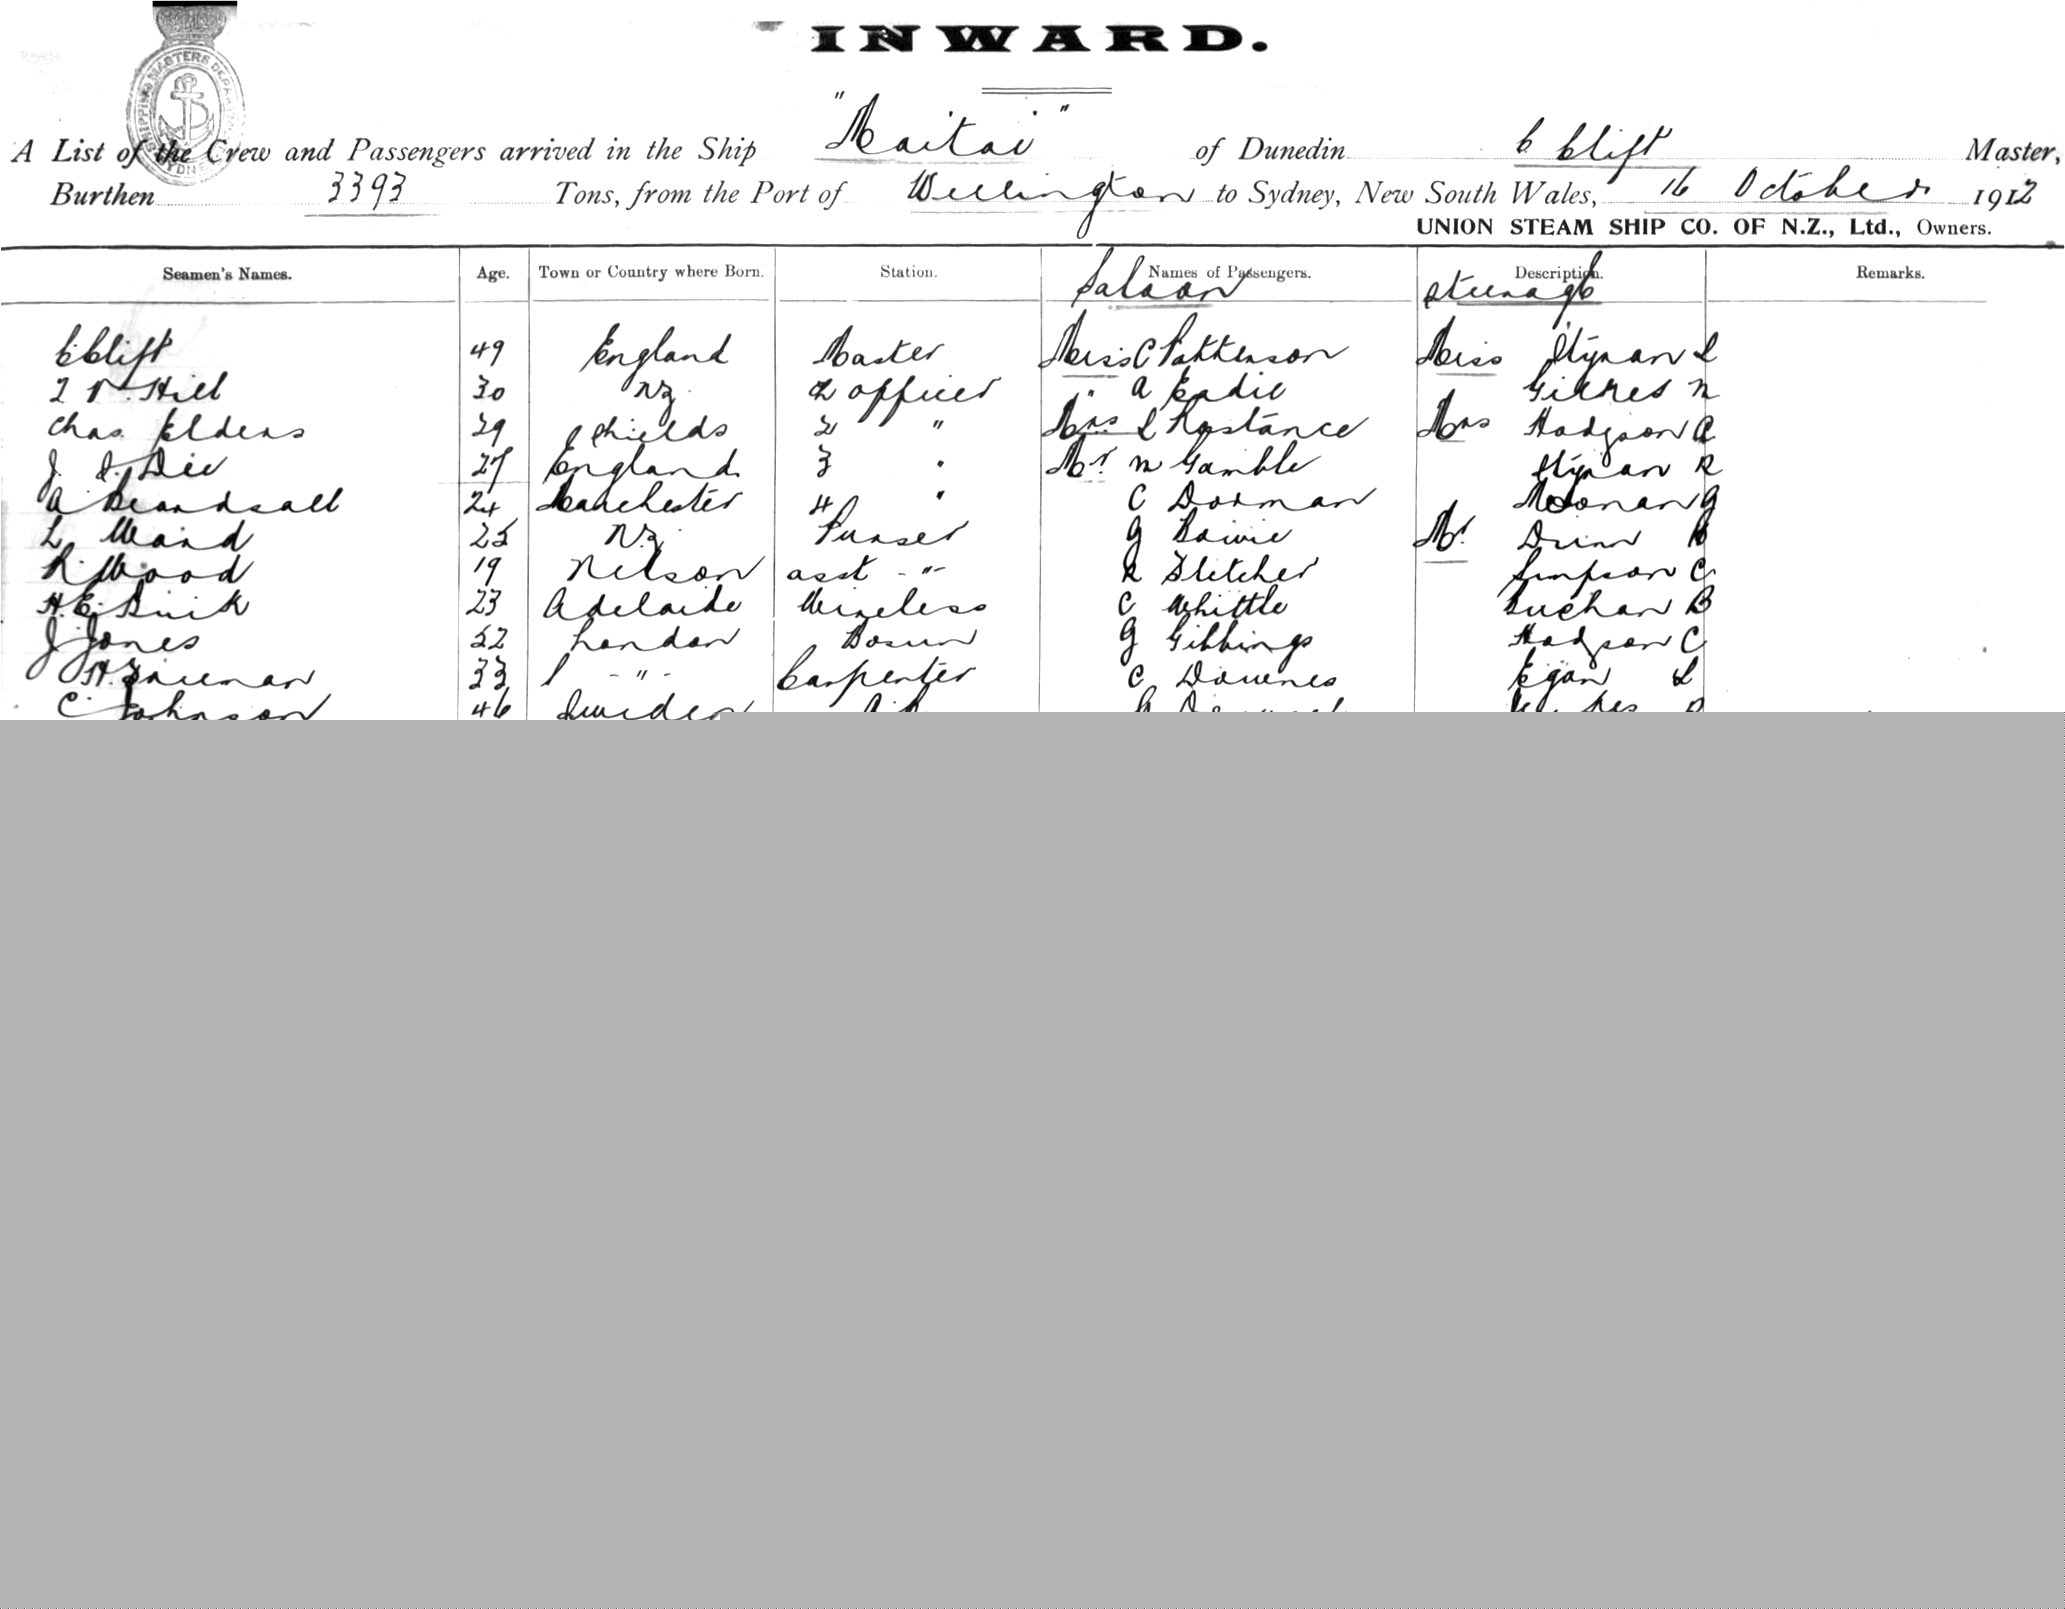 INWARD.
A List of the Crew and Passengers arrived in the Ship "Maitai" of Dunedin C Clift Master,
Burthen 3393 Tons, from the Port of Wellington to Sydney, New South Wales, 16 October 1912
UNION STEAM SHIP CO. OF N.Z., Ltd., Owners.
Seamen's Names. Age. Town or Country where Born. Station. Names of Passengers. Description. Remarks.
Saloon Steerage
C Clift 49 England Master Miss C Pattenson Miss Hynan L
Hill 30 NZ officer " A Eadie N
Chas Elders 29 Shields 2 " Mrs L Rostance Mrs Hodgson A
J 27 England 3 " Mr N Gamble Hynan R
A Beardsall 24 Manchester 4 " C Dorman Noonan G
L Ward 25 NZ Purser G Bowie Mr Dunn
R Wood 19 Nelson asst -"- R Fletcher Simpson C
H.E. Buik 23 Adelaide Wireless C Whittle Buchan B
J Jones 52 London Bosun G Gibbings Hodgson C
H 33 -"- Carpenter C Downes Egan L
C Johnson 46 Sweden